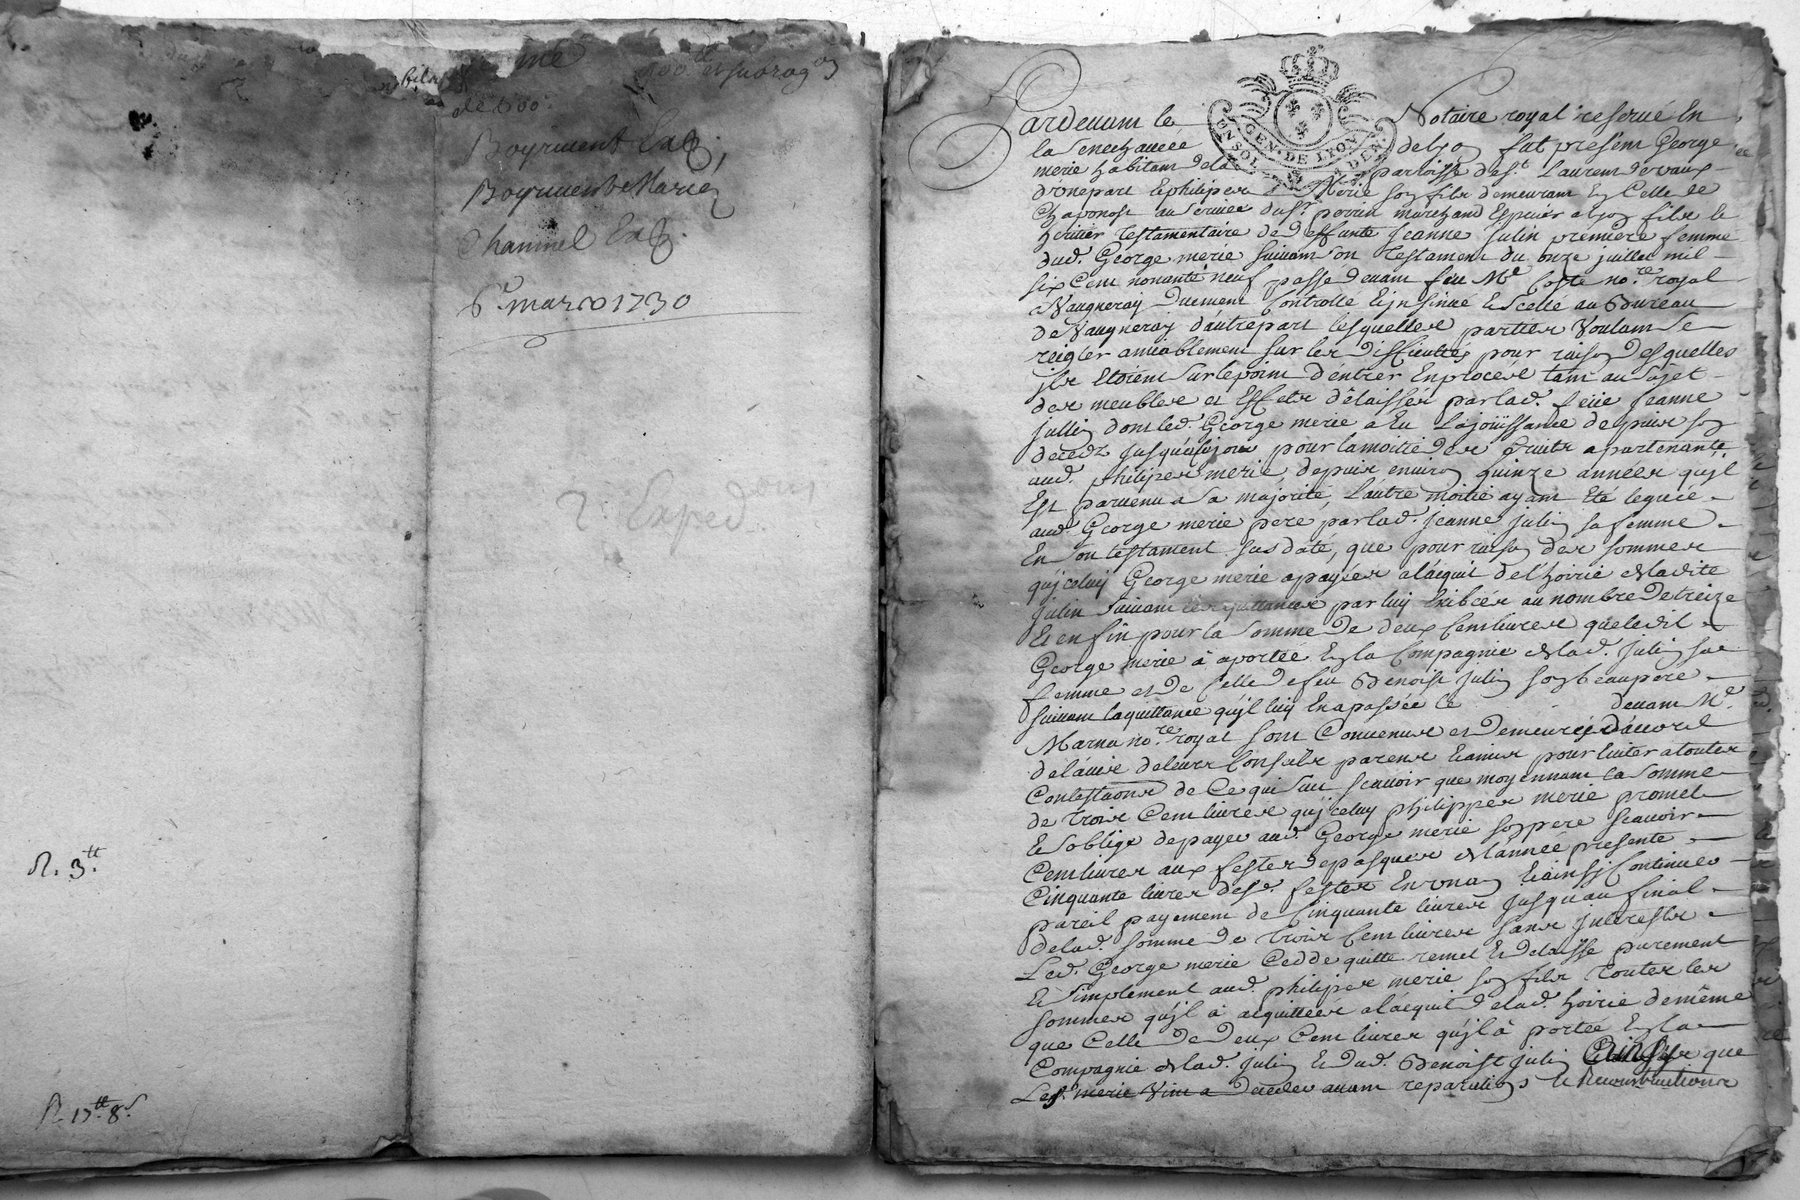 de 600#
Boyriuent
Boyriuent & Marie
Chamuel
6e. mars 1730
2 Exped.ons
R. 3.tt
R. 17.tt 8.s
GEN. DE LYON
UN SOL
Pardeuant le Notaire royal reserué En
la Senechaucée de Lyon fut présent George
merie habitant de la parroisse de St. Laurent de vaux
d'une part & philiper Merie son fils demeurant En Celle de
Chaponost au seruice du Sr. perrin marchand Espicier a lyon fils &
heritier testamentaire de deffunte Jeanne Julin première femme
dud. George merie suiuant son testament du onze juillet mil
six Cent nonante neuf passé deuant feu Me Coste no.re royal
a Vaugneray Duement Controllé & jnsinué & scellé au Bureau
de Vaugneray d'autre part lesquelles parties Voulant se
reigler amiablement sur les difficultés pour raison desquelles
jls Etoient sur le point d'entrer En procés tant au sujet
des meubles et Effets délaissés par lad. feüe Jeanne
Jullin dont led. George merie a Eu la joüissance depuis son
decedz jusqu'a ce jour pour la moitié des fruits apartenante
aud. philiper merie depuis enuiron quinze années qu'jl
Est paruenu a sa majorité, l'autre moitié ayant Eté leguée
aud. George merie pere par lad. Jeanne julin sa femme
En son testament susdaté, que pour raison des sommes
qu'jceluy George merie a payées a l'acquit de l'hoirie de ladite
Julin suiuant les quittances par luy Exibées au nombre de treize
& en fin pour la somme de deux Cent liures que ledit
George merie à aportée En la Compagnie de lad. Julin sa
femme et de Celle de feu Benoist Julin son beaupere
suiuant la quittance qu'jl luy En a passée le deuant Me
Marna no.re royal sont Conuenus et demeurés d'acord
de l'auis de leurs Conseils parens & amis pour Euiter a toutes
Contestations de Ce qui suit scauoir que moyennant la somme
de trois Cent liures qu'jceluy philipper merie promet
& s'oblige de payer aud. George merie son pere scauoir
Cent liures aux festes de pasques de l'année presente
Cinquante liures desd. festes En un an & ainsi Continuer
pareil payement de Cinquante liures jusqu'au final
de lad. somme de trois Cent liures sans jnterests
Led. George merie Cedde quitte remet & délaisse purement
& simplement aud. philiper merie son fils toutes les
sommes qu'jl à acquittées a l'acquit de lad. hoirie de même
que Celle de deux Cent liures qu'jl à portée En la
Compagnie de lad. Julin & dud. Benoist Julin que
Led. merie Vint a deceder auant reparations & reconstructions